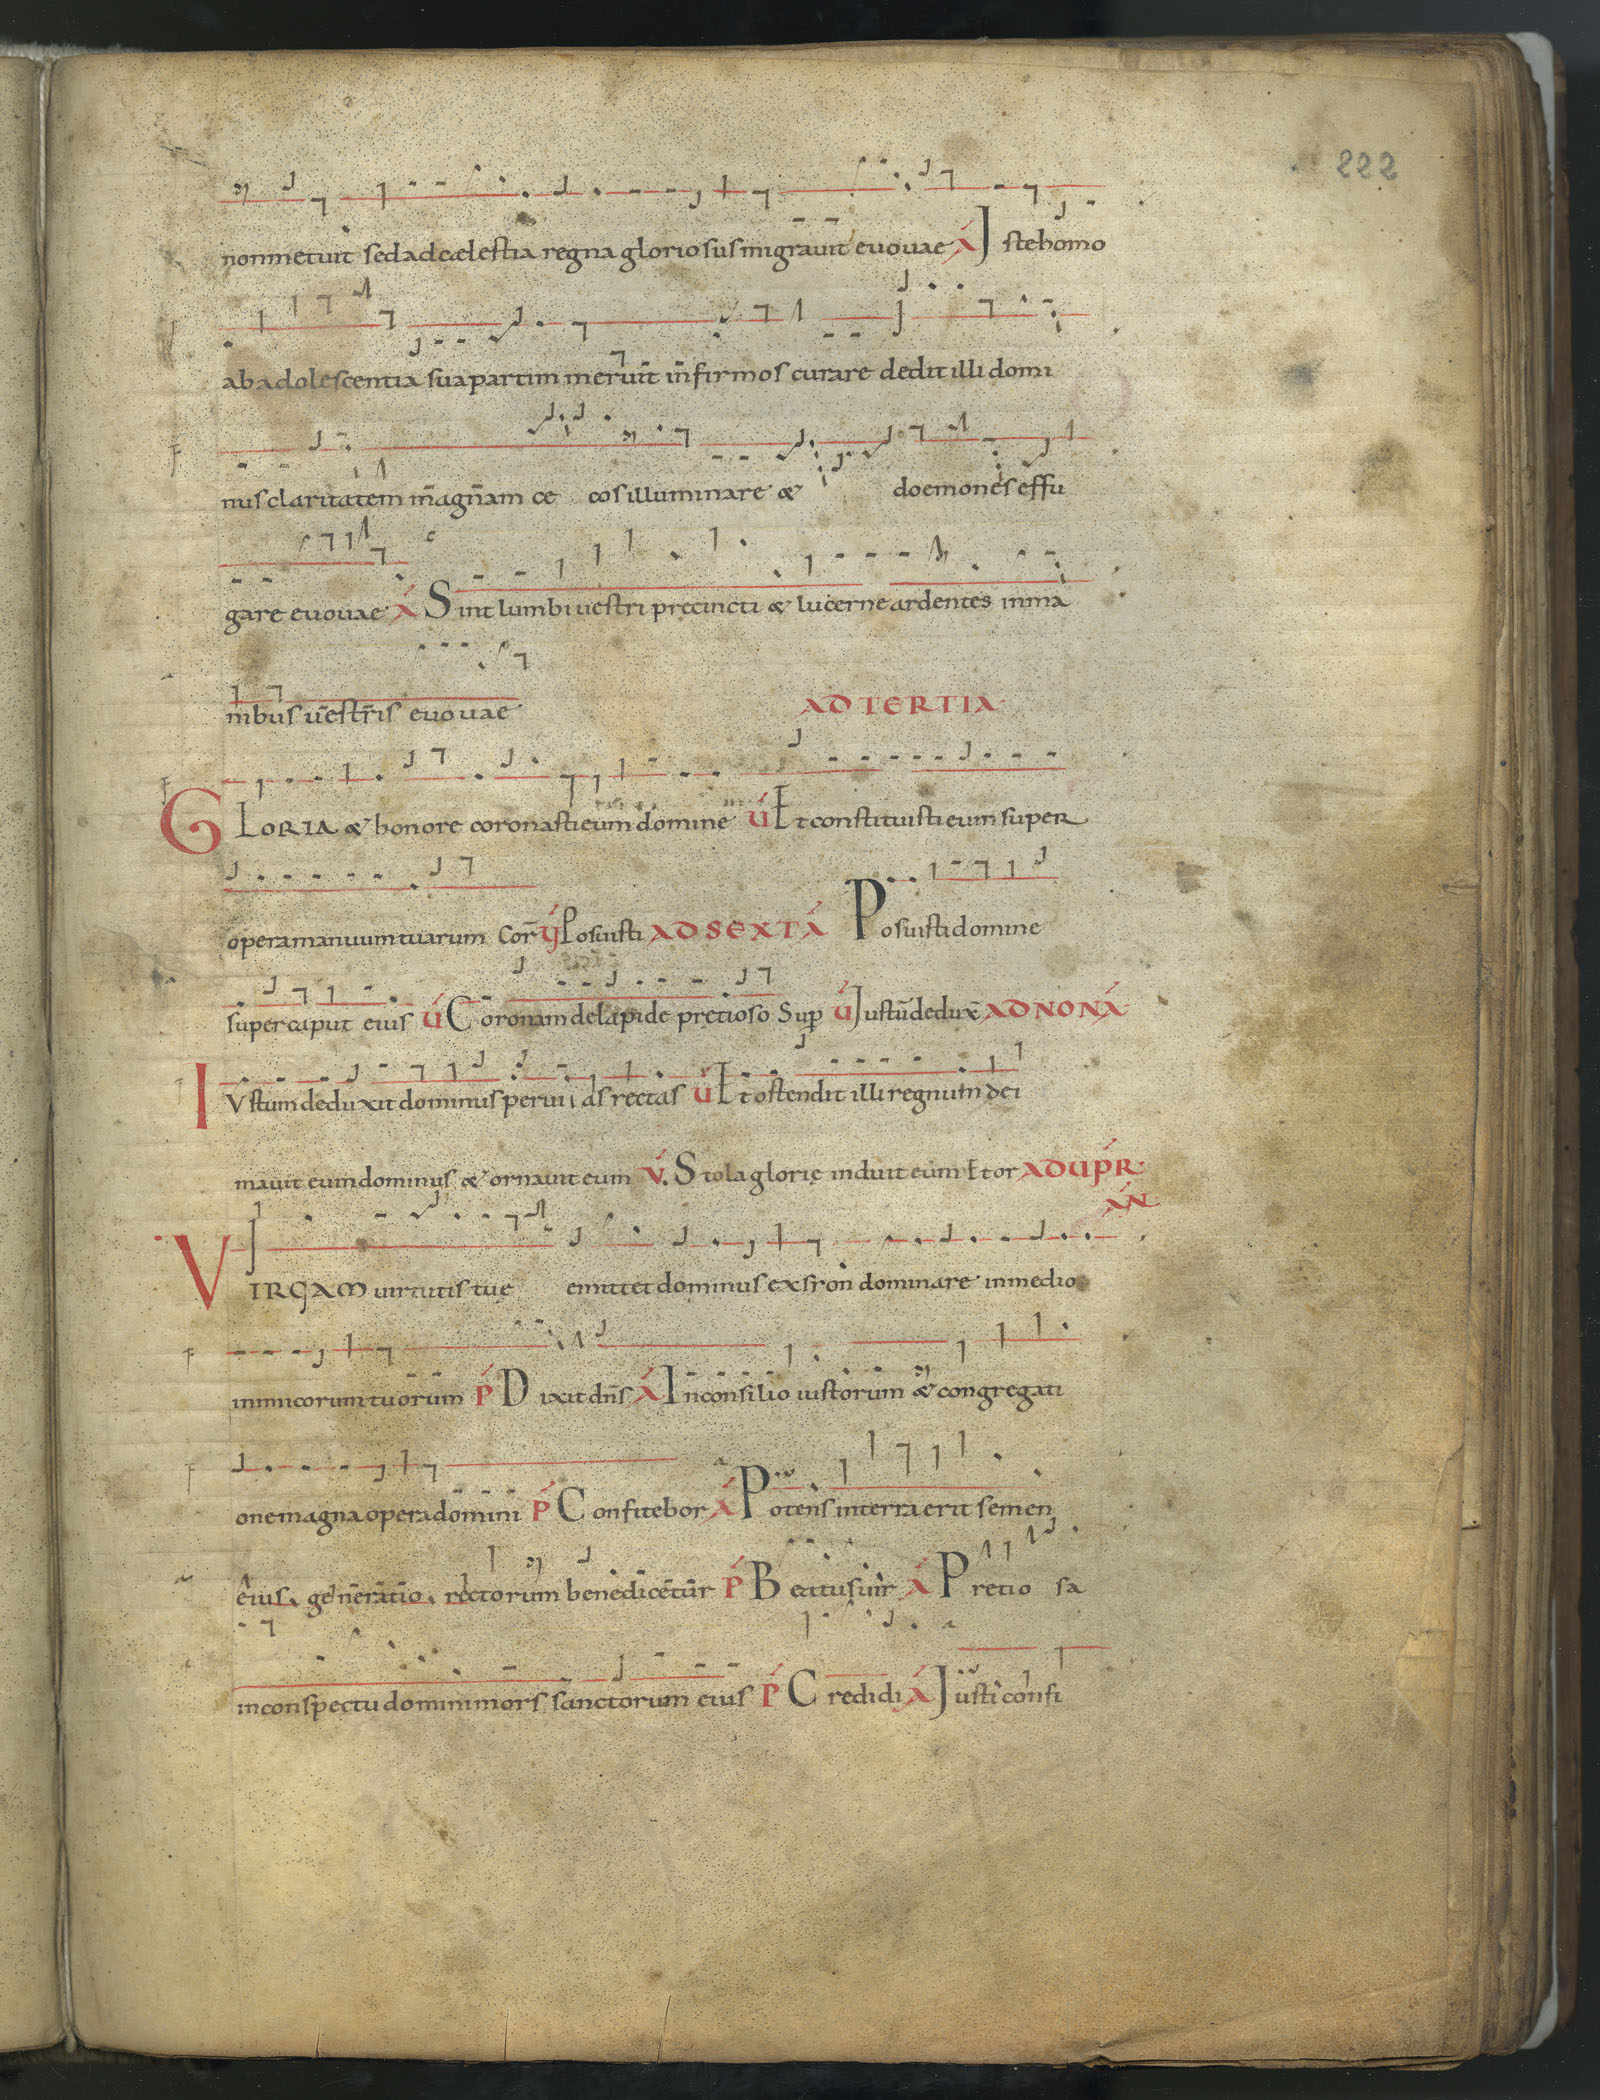 222
non metuit sed ad cælestia regna gloriosus migravit evovae A Iste homo
ab adolescentia sua partim meruit infirmos curare dedit illi domi
nus claritatem magnam ce cos illuminare & doemones effu
gare evovae A Sint lumbi vestri precincti & lucerne ardentes in ma
nibus vestris evovae AD TERTIA
GLORIA & honore coronasti eum domine V Et constituisti eum super
opera manuum tuarum Cor V Posuisti AD SEXTA Posuisti domine
super caput eius V Coronam de lapide precioso Sup V Iustū dedux̄ AD NONA
IUstum deduxit dominus per vias rectas V Et ostendit illi regnum dei
mavit eum dominus & ornavit eum V. Stola glorię induit eum Et or AD VPR
AN
VIRGAM virtutis tuę emittet dominus ex sion dominare in medio
inimicorum tuorum P Dixit dn̄s A In consilio iustorum & congregati
one magna opera domini P Confitebor A Potens in terra erit semen
eius, generatio, rectorum benedicetur P Beatus vir A Pretio sa
in conspectu domini mors sanctorum eius P Credidi A Iusti confi